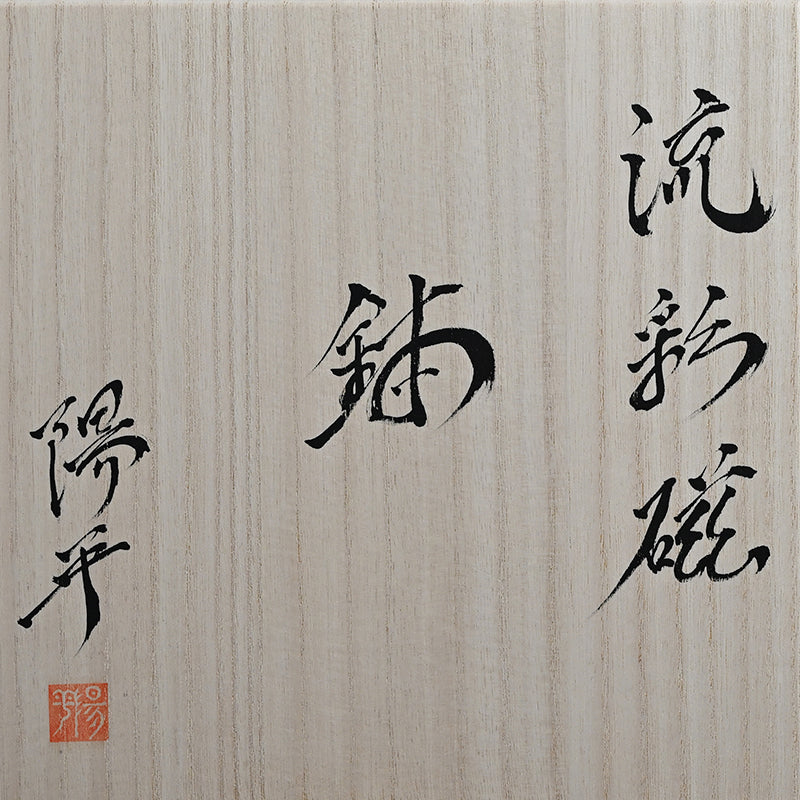 流彩磁
鉢
陽平
陽平